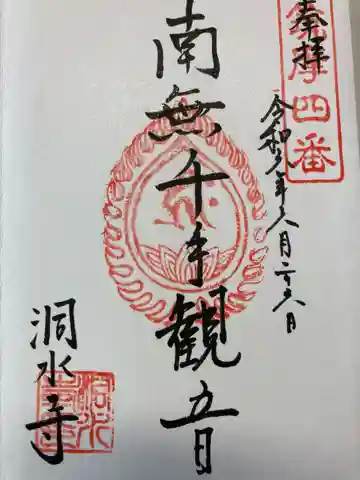 奉拝
四番
令和八年六月二十六日
南無千手観音
洞水寺